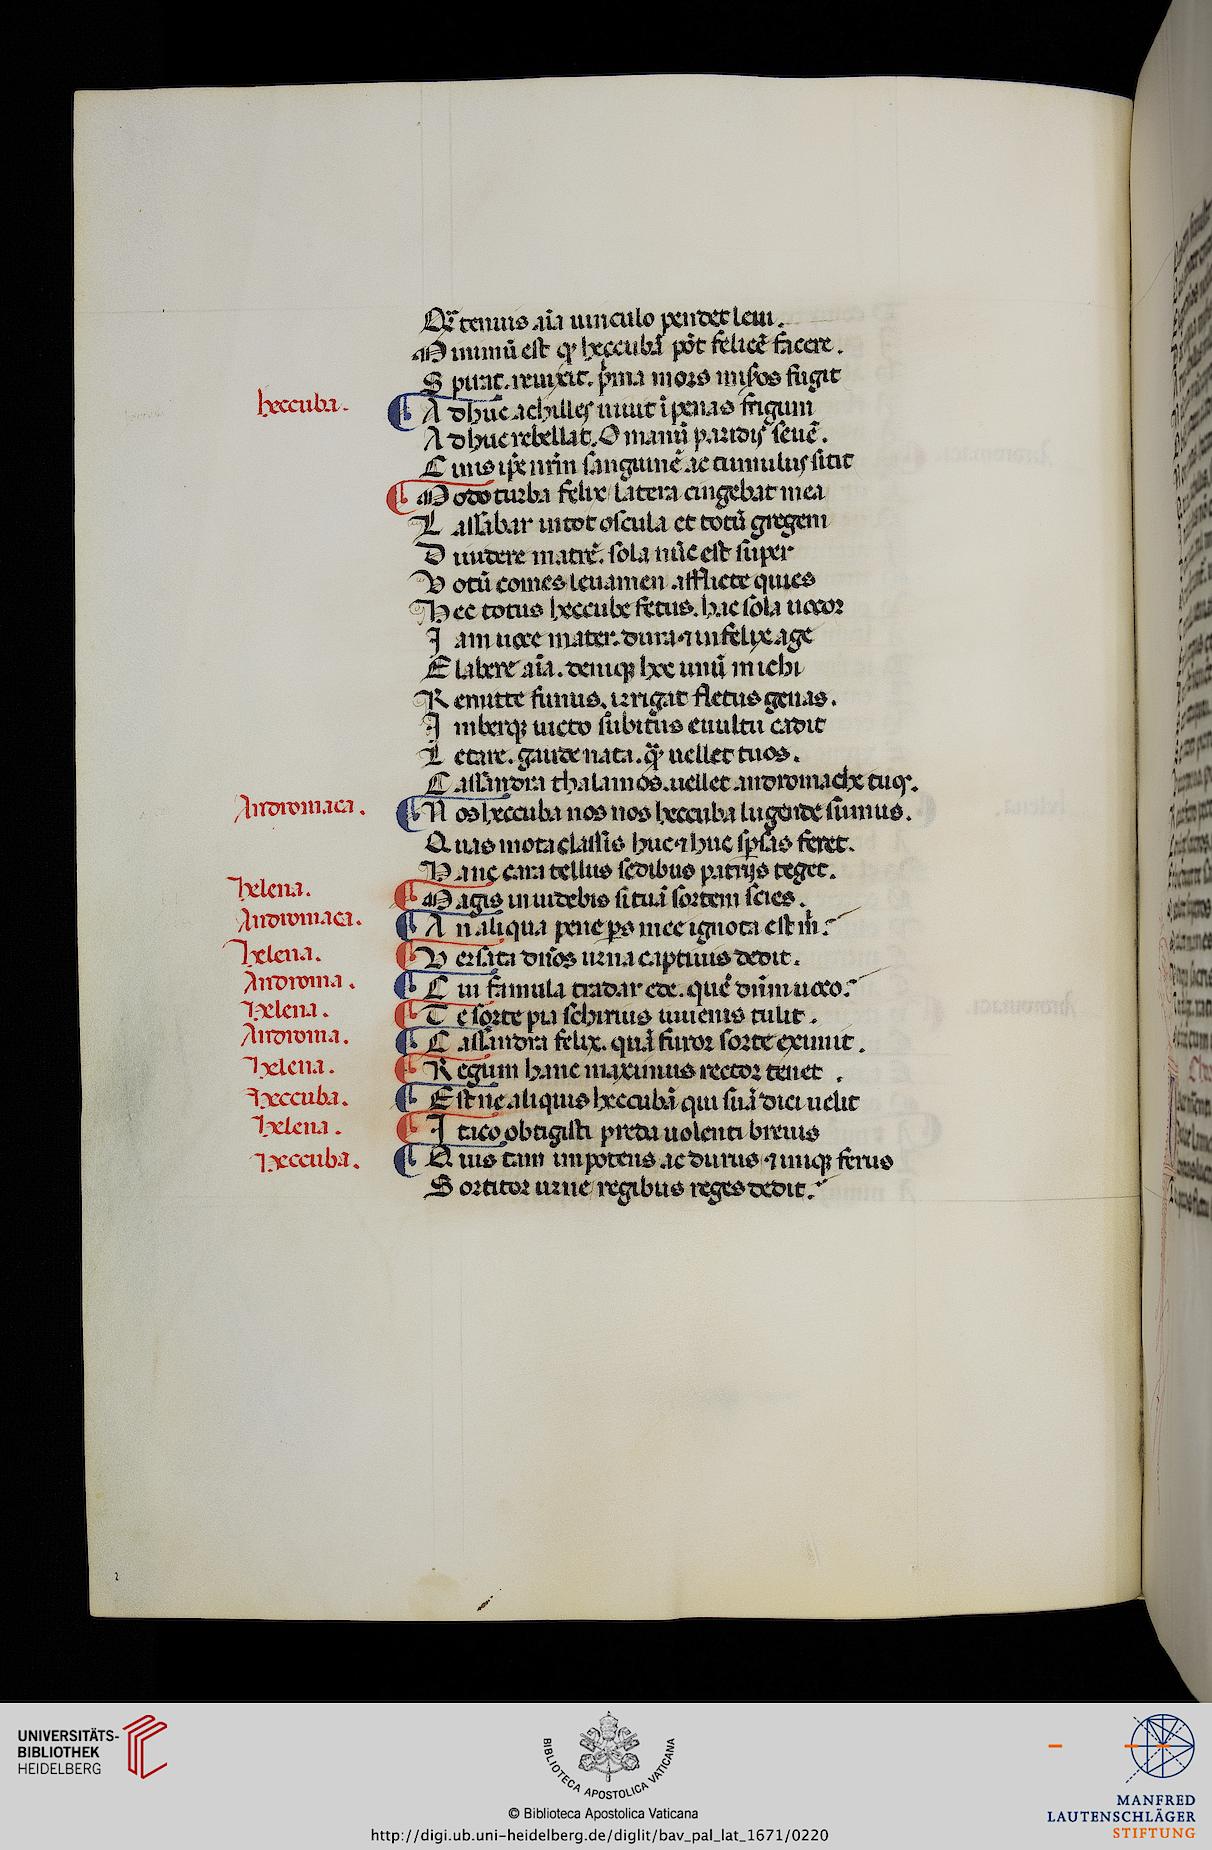 Qͣ tenuis aīa uinculo pendet leui.
Minimū est qͩ heccubā pōt felicē facere.
Spirat. reuixit. pͥma mors misͤos fugit
heccuba.
Adhuc achilles uiuit ī penas frigum
Adhuc rebellat. O manū paridis leuē.
Cinis ip̄e nr̄m sanguinē ac tumulus sitit
Modo turba felix latera cingebat mea
Lassabar in tot oscula et totū gregem
Diuidere matrē. sola nūc est super
Votū comes leuamen afflicte quies
Hec totus heccube fetus. hac sola uocor
Iam uoce mater. dura ⁊ infelix age
Elabere aīa. deniqꝫ hoc unū michi
Remitte funus. irrigat fletus genas.
Imberqꝫ uicto subitus e uultu cadit
Letare. gaude nata. qͣꝫ uellet tuos.
Cassandra thalamos. uellet andromache tuos.
Andromaca.
Nos heccuba nos nos heccuba lugende sumus.
Quas mota classis huc ⁊ huc sp̄sas feret.
Hanc cara tellus sedibus patrijs teget.
helena.
Magis inuidebis si tuā sortem scies.
Andromaca.
An aliqua pene ps̄ mee ignota est m̄.
helena.
Versata dn̄os urna captiuis dedit.
Androma.
Cui famula tradar ede. quē dn̄m uoco.
helena.
Te sorte pͥa schirius iuuenis tulit.
Androma.
Cassandra felix. quā furor sorte eximit.
helena.
Regum hanc maximus rector tenet.
heccuba.
Estne aliquis heccubā qui suā dici uelit
helena.
Itaco obtigisti preda nolenti breuis
heccuba.
Quis tam impotens ac durus ⁊ iniqꝫ ferus
Sortitor urne regibus reges dedit.
UNIVERSITÄTS-
BIBLIOTHEK
HEIDELBERG
BIBLIOTECA APOSTOLICA VATICANA
© Biblioteca Apostolica Vaticana
http://digi.ub.uni-heidelberg.de/diglit/bav_pal_lat_1671/0220
MANFRED
LAUTENSCHLÄGER
STIFTUNG